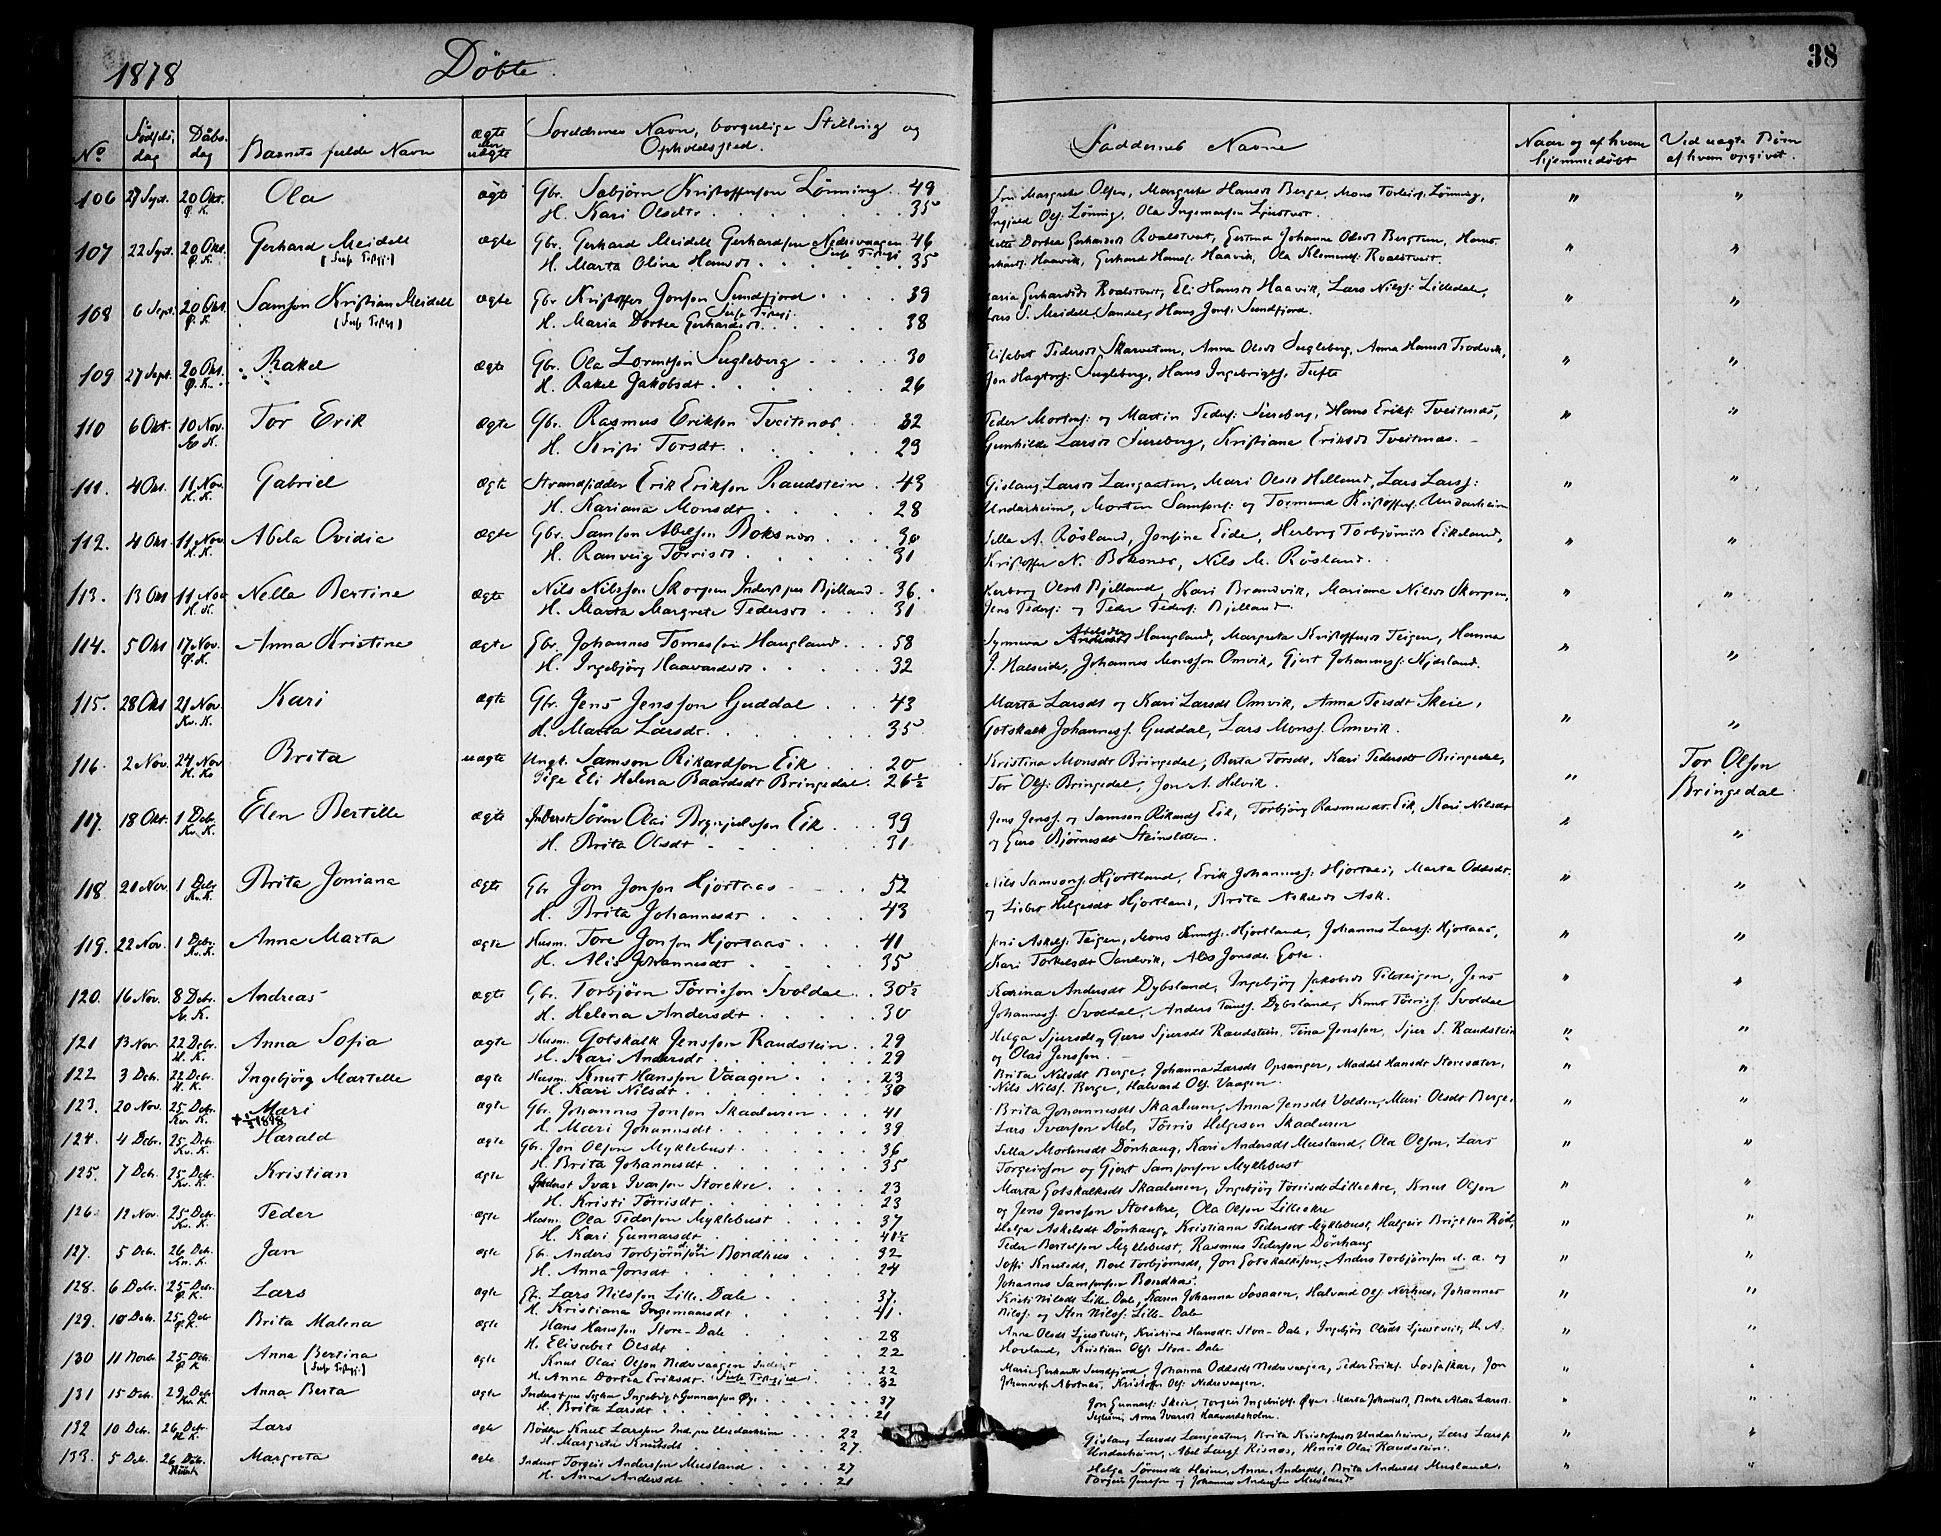 1878 Döbte. 38
No Födsels dag Daabs dag Barnets fulde Navn ægte eller uægte Forældrenes Navn, borgerlige Stilling og Opholdssted. Faddernes Navne Naar og af hvem hjemmedöbt Ved uægte Börn af hvem opgivet.
106 27 Sept. 20 Okt. Ø. K. Ola ægte Gbr. Sæbjörn Kristoffersen Lönning 49
H. Kari Olsdtr 35
Margrete Olsen, Margrete Hansd Berge, Mons Torleifs: Lönning,
Ingjeld Ols: Lönning, Ola Ingemarsen Ljustveit.
107 22 Sept. 20 Okt. Ø. K. Gerhard Meidell ægte Gbr. Gerhard Meidell Gerhardsen Nedrevaagen 46
H. Marta Oline Hansd 35
Dortea Gerhardsd Roaldstveit, Gertrud Johanna Olsd Bergtun, Hans
Haavik, Gerhard Hans: Haavik, Ola Klemens: Roaldstveit.
108 6 Sept. 20 Okt. Ø. K. Samson Kristian Meidell ægte Gbr. Kristoffer Jonson Sundfjord 39
H. Maria Dortea Gerhardsd 38
Maria Gerhardsd Roaldstveit, Eli Hansd Haavik, Lars Nilss: Lilledal,
Lars S. Meidell Sandal, Hans Jons: Sundfjord.
109 27 Sept. 20 Okt. Ø. K. Rakel ægte Gbr. Ola Lorentsen Fugleberg 30
H. Rakel Jakobsdt 26
Elisabet Pedersd Skarvetun, Anna Olsd Fugleberg, Anna Hansd Trodvik,
Jon Hagtors: Fugleberg, Hans Ingebrigts: Tufte
110 6 Okt. 10 Nov. Æ. K. Tor Erik ægte Gbr. Rasmus Eriksen Tveitenes 32
H. Kristi Torsdt. 29
Peder Mortens: og Martin Peders: Fureberg, Hans Eriks: Tveitenes,
Gunhilde Larsd Fureberg, Kristiane Eriksd Tveitenes.
111. 4 Okt. 11 Nov. H. K. Gabriel ægte Strandsidder Erik Eriksen Raudstein 43
H. Kariana Monsdt 28
Gislaug Larsd Langgaaten, Mari Olsd Helland, Lars Larss:
Undarheim, Morten Samsons: og Tormund Kristoffers: Undarheim
112. 4 Okt. 11 Nov H. K. Abela Ovidia ægte Gbr. Samson Abelsen Boksnes 30
H. Ranveig Tørrisd 31
Sella A. Røsland, Josefine Eide, Herborg Torbjörnsd Eikeland,
Kristoffer N. Boksnes, Nils M. Røsland.
113. 13 Okt 11 Nov H. K. Nella Bertine ægte Nils Nilsson Skorpen Inderst paa Bjelland 36.
H. Marta Margrete Pedersd 31
Herborg Olsd Bjelland, Kari Brandvik, Mariane Nilsd Skorpen,
Jens Peders: og Peder Peders: Bjelland
114. 5 Okt 17 Nov. Ø. K. Anna Kristine ægte Gbr. Johannes Tomassen Haugland 58
H. Ingebjörg Haavardsd 32
Synneva Abelsdtr Haugland, Margreta Kristoffersd Teigen, Hanna
J. Halseide, Johannes Monsson Omvik, Gjert Johanness: Njæsland.
115. 28 Okt 21 Nov. Kv. K. Kari ægte Gbr. Jens Jensson Guddal 43
H. Marta Larsdt. 35
Marta Larsdt og Kari Larsdt Omvik, Anna Persdt Skeie,
Gotskalk Johanness. Guddal, Lars Monss. Omvik.
116. 2 Nov. 24 Nov H. K. Brita uægte Ungk. Samson Rikardson Eik 20
Pige Eli Helena Baardsdt Bringedal 26½
Kristina Monsdt Bringedal, Berta Torsdt, Kari Pedersdt Bringedal,
Tor Ols: Bringedal, Jon A. Helvik.
Tor Olson
Bringedal
117. 18 Okt. 1 Debr. Kv. K. Elen Bertille ægte Inderst Sörn Olai Brynjulvson Eik 39
H. Brita Olsdt 31
Jens Jenss. og Samson Rikards Eik, Torbjörg Rasmusdt. Eik, Kari Nilsdt
og Guro Bjørnesdt Steinsletten.
118 21 Nov. 1 Debr Kv. K. Brita Joniana ægte Gbr Jon Jonson Hjortaas 52
H. Brita Johannesdt 43
Nils Samsons: Hjortland, Erik Johanness: Hjortaas, Marta Oddsdt.
og Lisbet Helgesdt Hjortland, Brita Askelsd Ask.
119. 22 Nov. 1 Debr. Kv. K. Anna Marta ægte Husm. Tore Jonson Hjortaas 41
H. Alis Johannesdt 35
Askels: Teigen, Mons Knuts: Hjortland, Johannes Larss: Hjortaas,
Kari Torkelsdt Sandvik, Alis Jonsdt. Gote.
120. 16 Nov. 8 Debr. Æ. K. Andreas ægte Gbr. Torbjörn Tørrisson Svoldal 30½
H. Helena Andersdt 30
Karina Andersdt Dybsland, Ingebjörg Jakobsd Pilteigen, Jens
Johanness. Svoldal, Anders Dybsland, Knut Tørriss. Svoldal
121 13 Nov. 22 Debr. H. K. Anna Sofia ægte Husm. Gotskalk Jensson Raudstein 29
H. Kari Andersdt 29
Helga Sjursdt og Guro Sjursdt Raudstein, Tina Jensson, Sjur S. Raudstein
og Olai Jensson.
122 3 Debr. 22 Debr. H. K. Ingebjörg Martelle ægte Husm. Knut Hansson Vaagen 23
H. Kari Nilsdt 30
Brita Nilsdt Berge, Johanna Larsdt Opsanger, Maddel Hansdt Storesæter,
Nils Nilss. Berge, Halvard Ols. Vaagen.
123. 20 Nov. 25 Debr. Kv. K. Mari ægte Gbr. Johannes Jonson Skaaluren 41
H. Mari Johannesdt 39
Brita Johannesdt Skaaluren, Anna Jensdt Valden, Mari Olsdt Berge,
Lars Ivarson Mel, Tørris Helgeson Skaaluren
124. 4 Debr. 25 Debr. Kv. K. Harald ægte Gbr. Jon Olson Myklebust 36
H. Brita Johannesdt 35
Sella Mortensdt Dönhaug, Kari Andersdt Musland, Ola Olson, Lars
Torgeirsson og Gjert Samsonson Myklebust
125. 7 Debr. 25 Debr. Kv. K. Kristian ægte Inderst Ivar Ivarson Storekre 23
H. Kristi Tørrisdt 23
Marta Gotskalksdt Skaaluren, Ingebjörg Tørrisdt Lillekre, Knut Olson
og Jens Jensson Storekre, Ola Olson Lillekre
126. 12 Nov. 25 Debr. Kv. K. Peder ægte Husm. Ola Pederson Myklebust 37
H. Kari Gunnarsdt 41½
Helga Askelsdt Dönhaug, Kristiana Pedersdt Myklebust, Halgeir Brigtson Röd,
Peder Bertelson Myklebust, Rasmus Pederson Dönhaug
127. 5 Debr. 26 Debr. Kv. K. Jan ægte Gbr. Anders Torbjörnson Bondhus 32
H. Anna Jonsdt 24
Soffi Knutsdt, Boel Torbjörnsdt, Jon Gotskalkson, Anders Torbjörnson d. æ. og
Johannes Samsonson Bondhus.
128. 6 Debr. 25 Debr. Ø. K. Lars ægte Gbr. Lars Nilsson Lille-Dale 37
H. Kristiana Ingemarsdt 41.
Kristi Nilsdt Lille Dale, Karen Johanna Fosaaen, Halvard Ols. Nerhus, Johannes
Nilss. og Sten Nilss. Lille-Dale
129. 10 Debr. 25 Debr Ø. K. Brita Malena ægte Hans Hansson Store-Dale 28
H. Elisabet Olsdt 22
Anne Olsdt Ljustveit, Kristine Hansdt. Store-Dale, Ingebjörg Olsdt Ljustveit, H. A.
Hovland, Kristian Ols. Store-Dale
130 11 Novbr. 25 Debr. Ø K Anna Bertina ægte Knut Olai Olson Nedrevaagen Inderst 22
H. Anna Dortea Eriksdt. 32
Marie Gerhardt Sundfjord, Johanna Oddsdt Nedrevaagen, Peder Eriks., Jon
Johanness. Abotnes, Kristoffer Ols. Nedrevaagen.
131 15 Debr. 29 Debr Kv. K. Anna Berta ægte Inderst paa Ingebrigt Gunnarson Øye 37
H. Brita Larsdt 21
Jon Gunnars: Skeie, Torgeir Ingebrigts: Øye, Marta Johansd, Berta Larsd.
Anna Ivarsd Haavardsholm.
132 10 Debr. 26 Debr H. K. Lars ægte Bødker Knut Larsson Ind. paa Undarheim 22
H. Margrete Knutsdt 27.
Gislaug Larsdt Langgaaten, Brita Kristofersd Undarheim, Lars Larss
Undarheim, Abel Larss Risnes, Henrik Olai Raudstein.
133. 5 Debr. 26 Debr. Margreta ægte Inderst Torgeir Anderson Musland 27
H. Anna Andersdt 21
Helga Sörensdt Heien, Anna Andersdt, Brita Andersdt Musland,
Torgeir Jensson og Johannes Anderson Musland